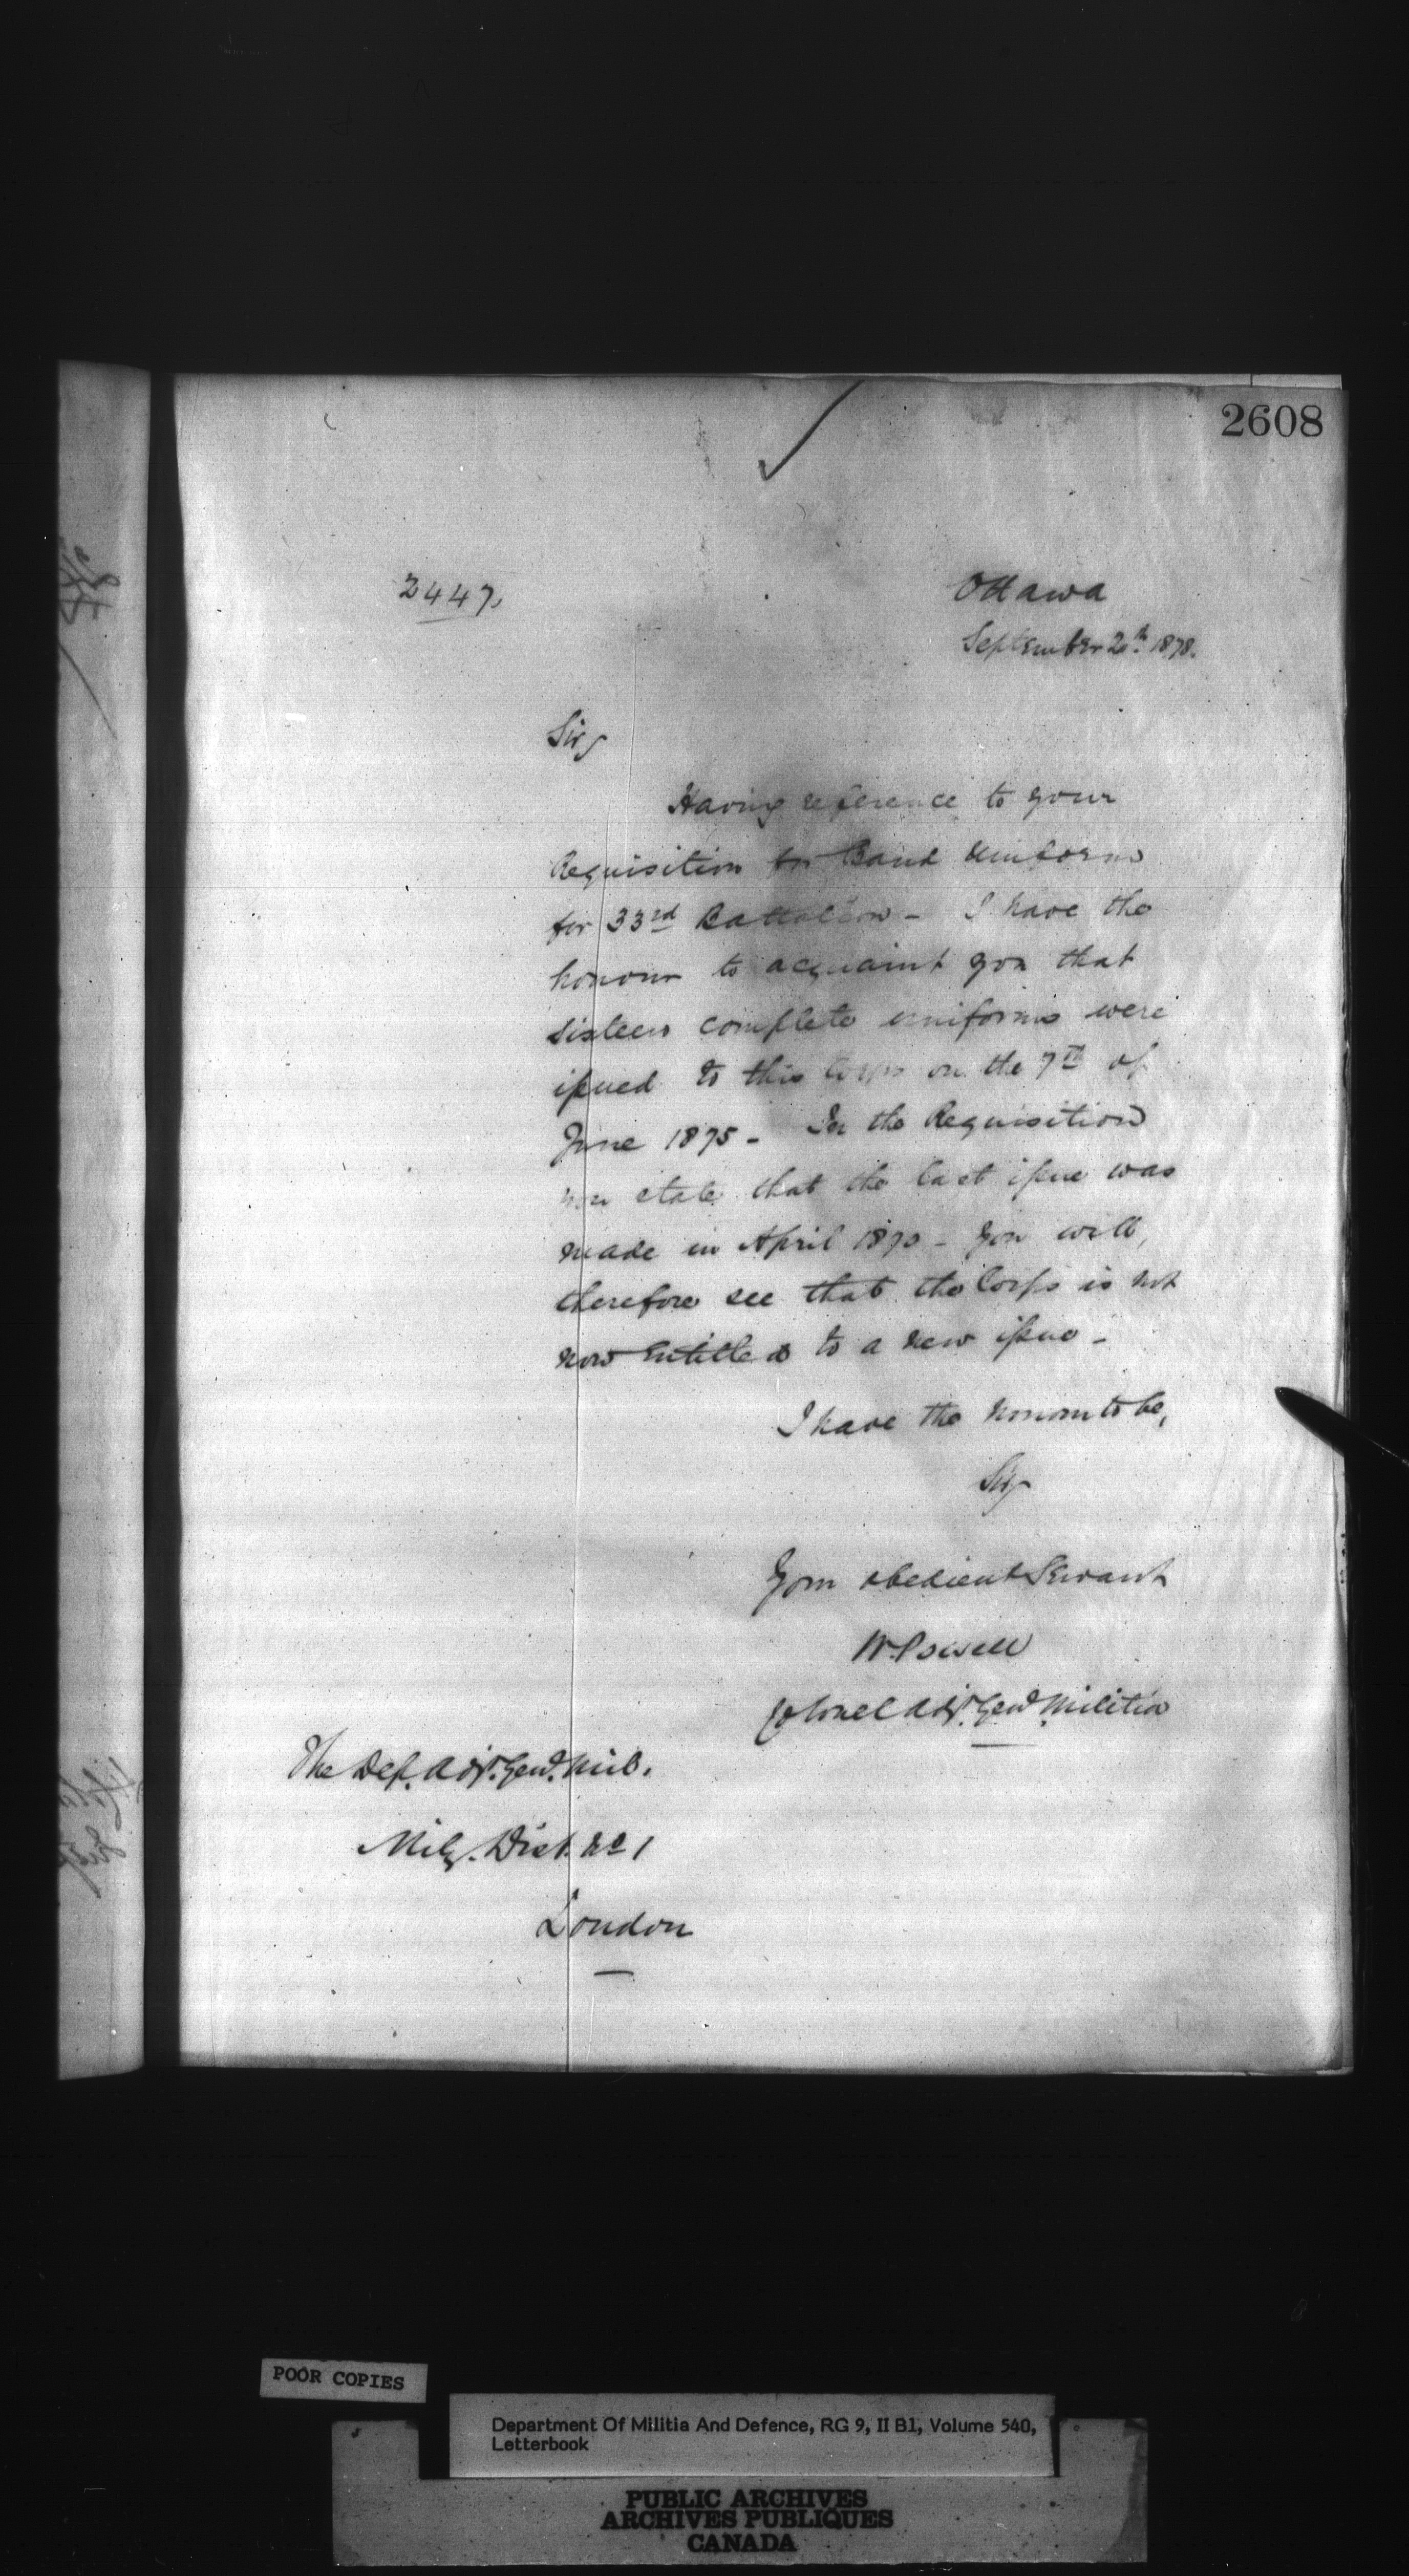 2608
2447.
Ottawa
September 20th 1878.
Sir,
Having reference to your
Requisition for Band Uniforms
for 33rd Battalion - I have the
honour to acquaint you that
sixteen complete uniforms were
issued to this Corps on the 7th of
June 1875 - In the Requisition
you state that the last issue was
made in April 1870 - You will,
therefore see that the Corps is not
now entitled to a new issue -
I have the honour to be,
Sir,
Your obedient Servant
W. Powell
Colonel Adjt. Genl. Militia
The Dep. Adjt. Genl. Mil.
Mily. Dist. No 1
London
POOR COPIES
Department Of Militia And Defence, RG 9, II B1, Volume 540,
Letterbook
PUBLIC ARCHIVES
ARCHIVES PUBLIQUES
CANADA